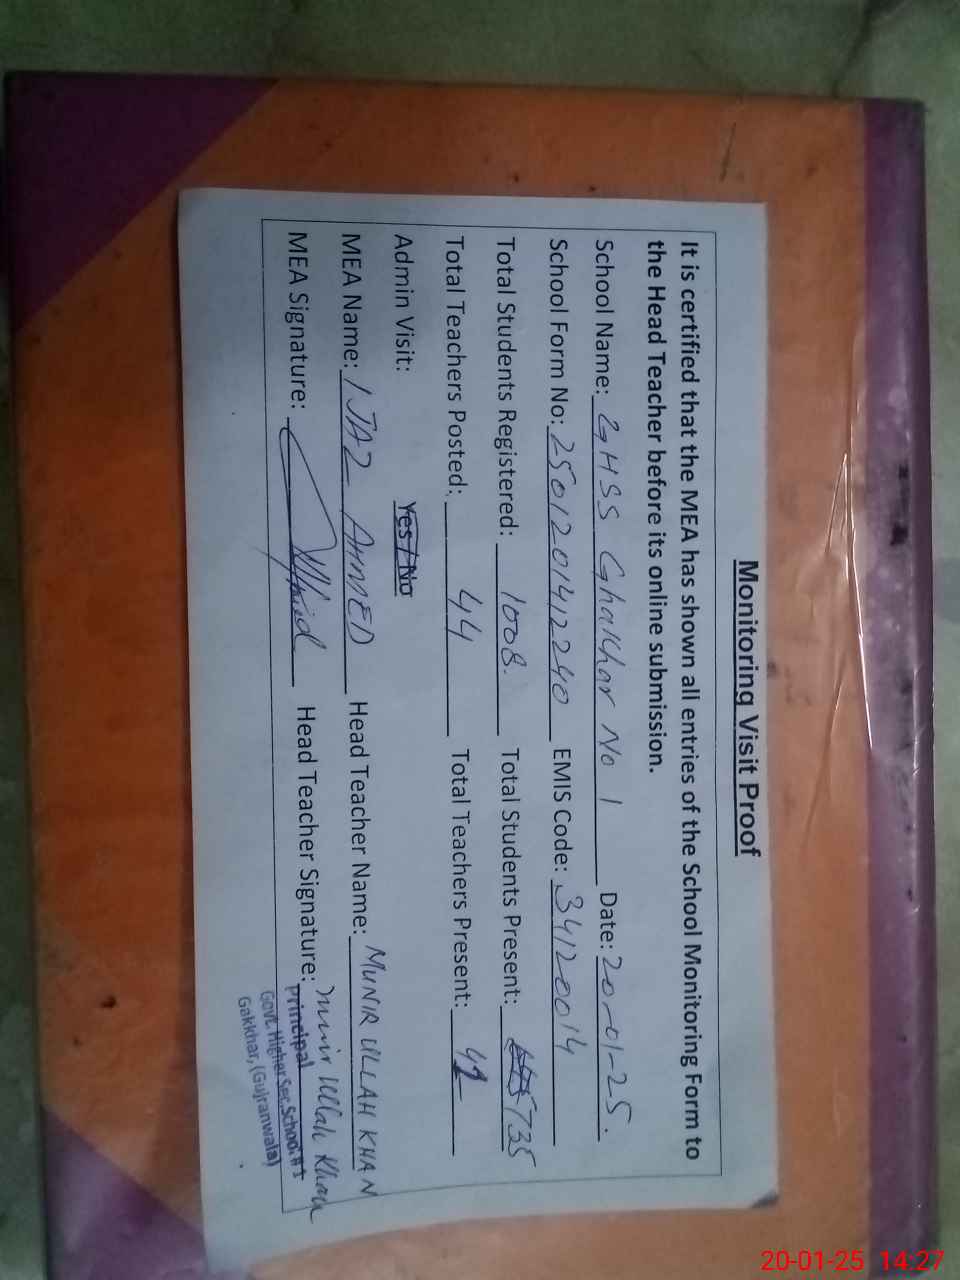 Monitoring Visit Proof
It is certified that the MEA has shown all entries of the School Monitoring Form to
the Head Teacher before its online submission.
School Name: GHSS Ghakhar No 1 Date: 20-01-25.
School Form No: 2501201412240 EMIS Code: 34120014
Total Students Registered: 1008. Total Students Present: 735
Total Teachers Posted: 44 Total Teachers Present:
Admin Visit: Yes / No
MEA Name: IJAZ AHMED Head Teacher Name: MUNIR ULLAH KHAN
MEA Signature: Head Teacher Signature: Munir Ullah Khan
Principal
Govt. Higher Sec. School # 1
Gakkhar, (Gujranwala)
20-01-25 14:27